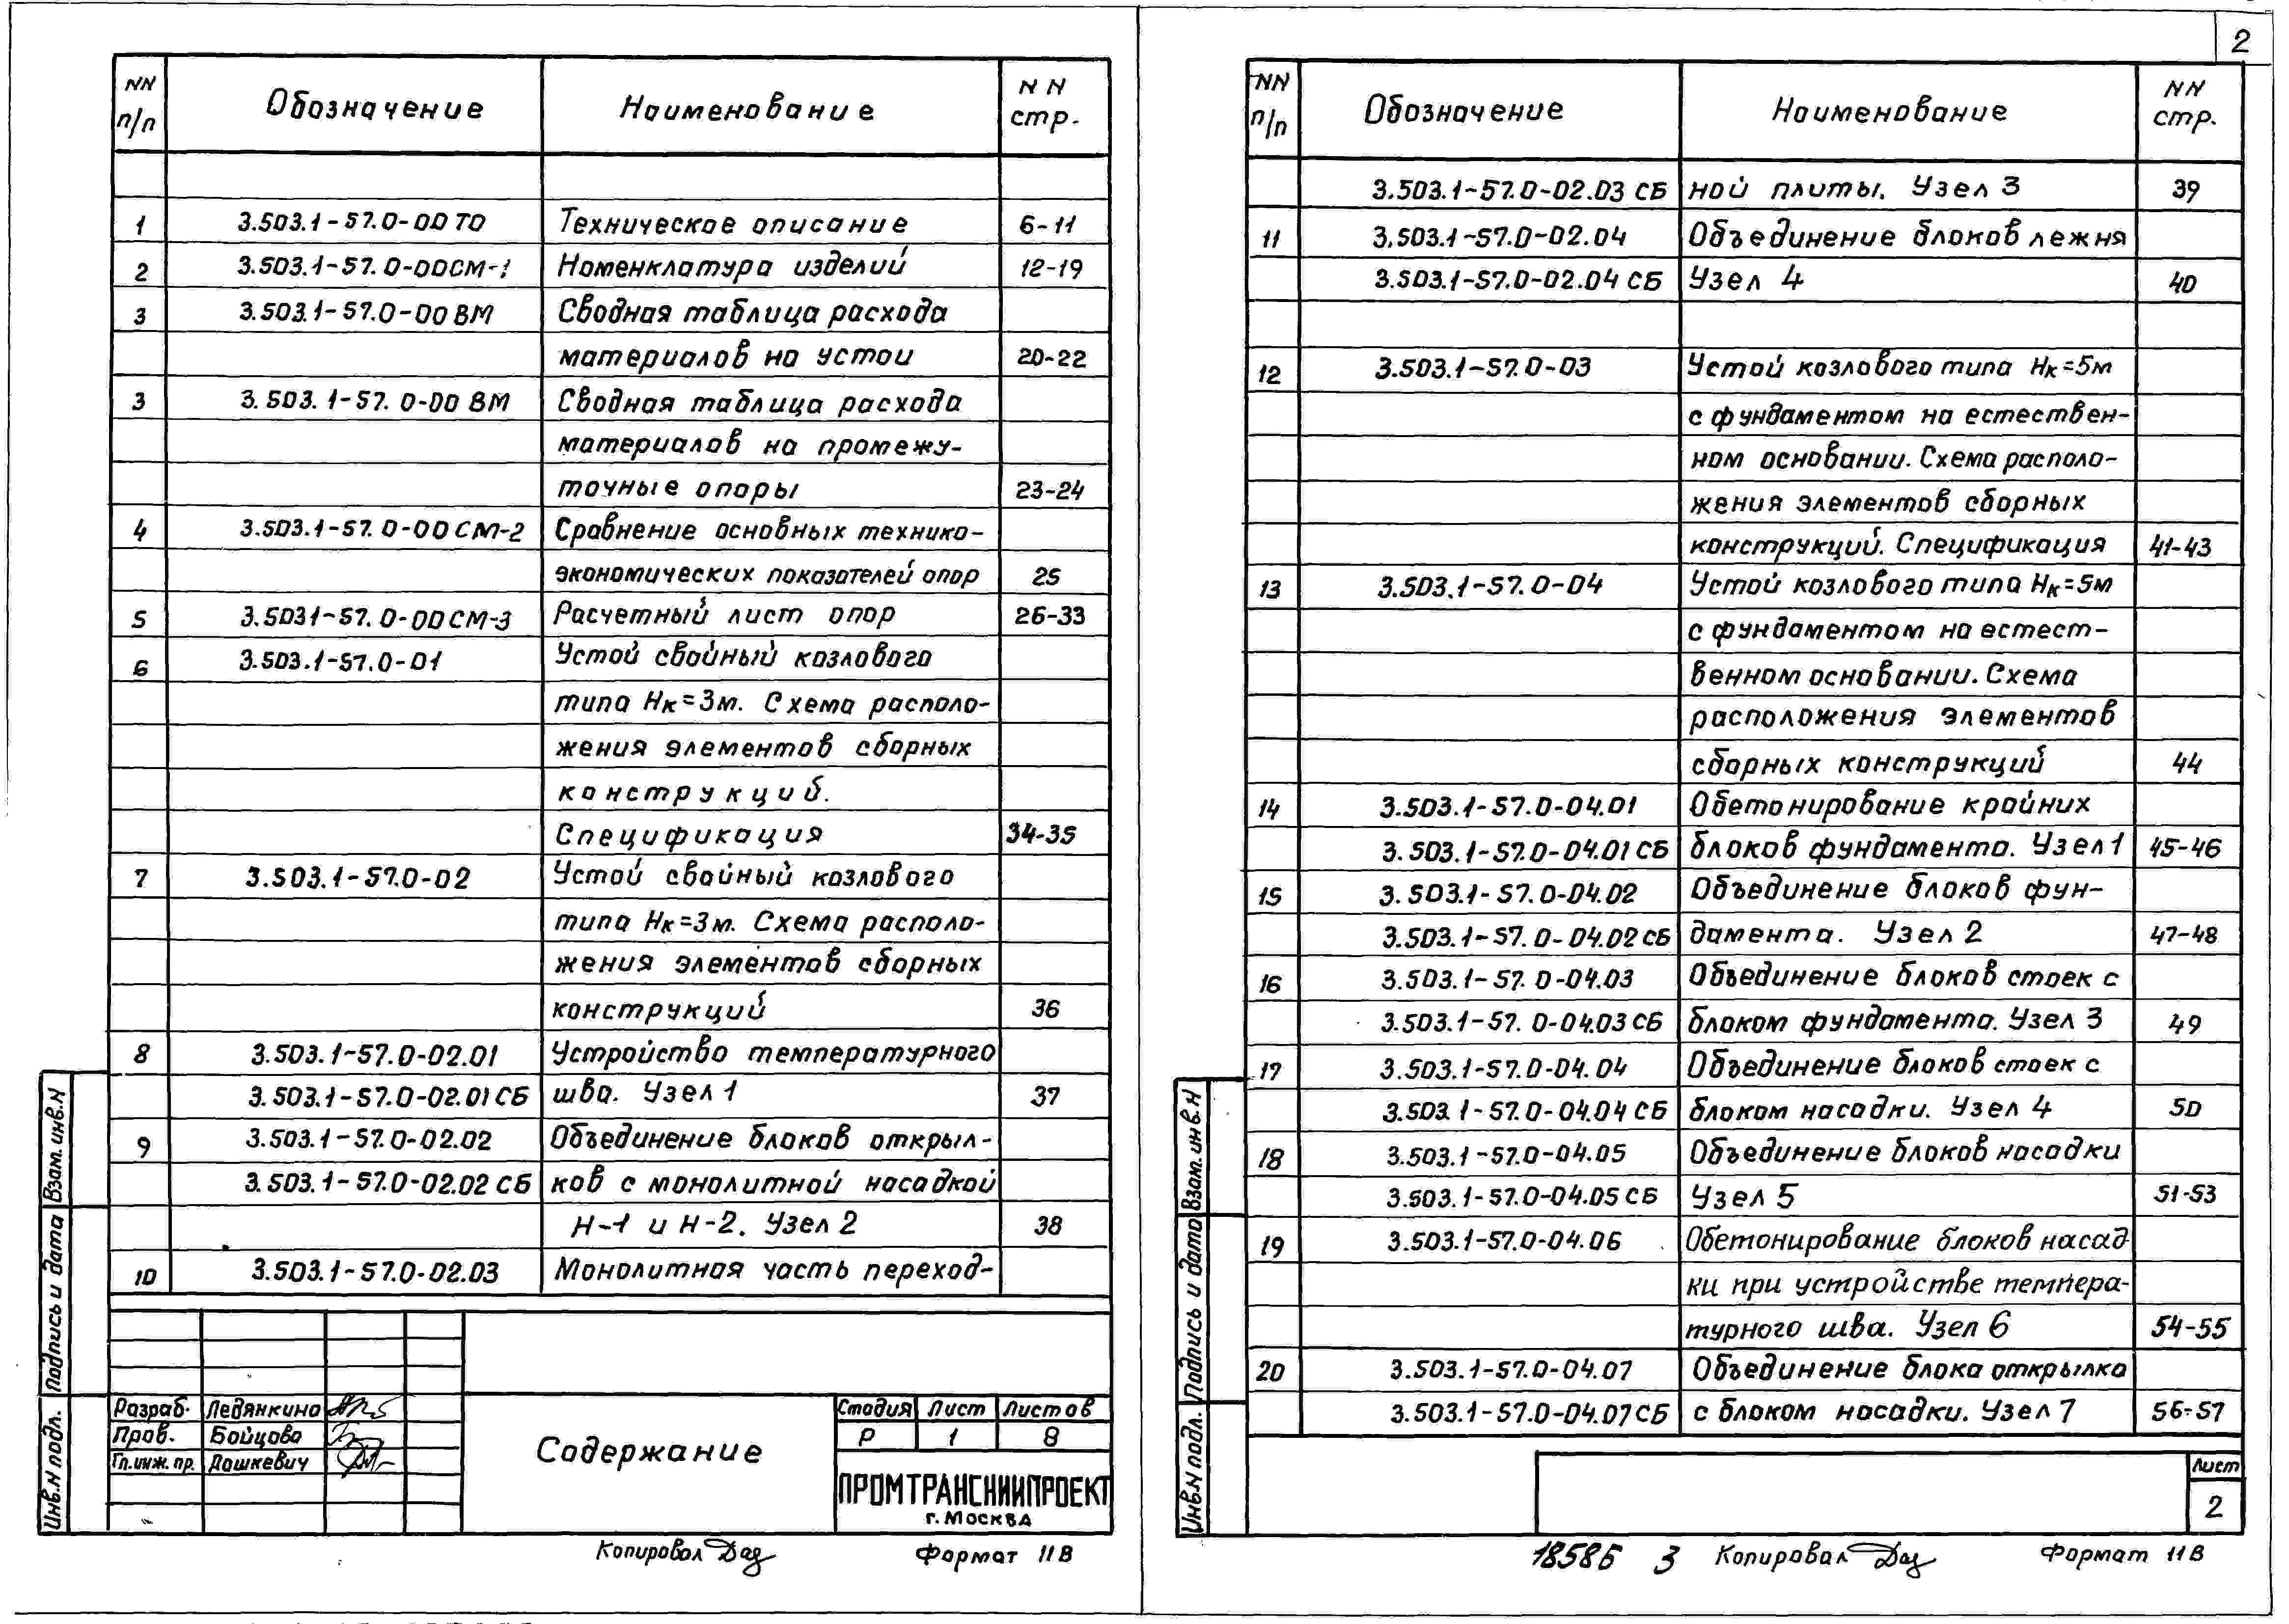 2
NN п/п Обозначение Наименование NN стр.
1 3.503.1-57.0-00 ТО Техническое описание 6-11
2 3.503.1-57.0-00СМ-1 Номенклатура изделий 12-19
3 3.503.1-57.0-00 ВМ Сводная таблица расхода
материалов на устои 20-22
3 3.503.1-57.0-00 ВМ Сводная таблица расхода
материалов на промежу-
точные опоры 23-24
4 3.503.1-57.0-00 СМ-2 Сравнение основных технико-
экономических показателей опор 25
5 3.5031-57.0-00СМ-3 Расчетный лист опор 26-33
6 3.503.1-57.0-01 Устой свайный козлового
типа Нк=3м. Схема располо-
жения элементов сборных
конструкций.
Спецификация 34-35
7 3.503.1-57.0-02 Устой свайный козлового
типа Нк=3м. Схема располо-
жения элементов сборных
конструкций 36
8 3.503.1-57.0-02.01 Устройство температурного
3.503.1-57.0-02.01 СБ шва. Узел 1 37
9 3.503.1-57.0-02.02 Объединение блоков открыл-
3.503.1-57.0-02.02 СБ ков с монолитной насадкой
Н-1 и Н-2. Узел 2 38
10 3.503.1-57.0-02.03 Монолитная часть переход-
Разраб. Ледянкина
Пров. Бойцова
Гл.инж.пр. Дашкевич
Содержание
Стадия Лист Листов
Р 1 8
ПРОМТРАНСНИИПРОЕКТ
г. Москва
Взам. инв.N
Подпись и дата
Инв.N подл.
Копировал Формат 11В
NN п/п Обозначение Наименование NN стр.
3.503.1-57.0-02.03 СБ ной плиты. Узел 3 39
11 3.503.1-57.0-02.04 Объединение блоков лежня
3.503.1-57.0-02.04 СБ Узел 4 40
12 3.503.1-57.0-03 Устой козлового типа Нк=5м
с фундаментом на естествен-
ном основании. Схема располо-
жения элементов сборных
конструкций. Спецификация 41-43
13 3.503.1-57.0-04 Устой козлового типа Нк=5м
с фундаментом на естест-
венном основании. Схема
расположения элементов
сборных конструкций 44
14 3.503.1-57.0-04.01 Обетонирование крайних
3.503.1-57.0-04.01 СБ блоков фундамента. Узел 1 45-46
15 3.503.1-57.0-04.02 Объединение блоков фун-
3.503.1-57.0-04.02 СБ дамента. Узел 2 47-48
16 3.503.1-57.0-04.03 Объединение блоков стоек с
3.503.1-57.0-04.03 СБ блоком фундамента. Узел 3 49
17 3.503.1-57.0-04.04 Объединение блоков стоек с
3.503.1-57.0-04.04 СБ блоком насадки. Узел 4 50
18 3.503.1-57.0-04.05 Объединение блоков насадки
3.503.1-57.0-04.05 СБ Узел 5 51-53
19 3.503.1-57.0-04.06 Обетонирование блоков насад
ки при устройстве темпера-
турного шва. Узел 6 54-55
20 3.503.1-57.0-04.07 Объединение блока открылка
3.503.1-57.0-04.07 СБ с блоком насадки. Узел 7 56-57
Лист
2
Взам. инв.N
Подпись и дата
Инв.N подл.
18586 3 Копировал Формат 11В